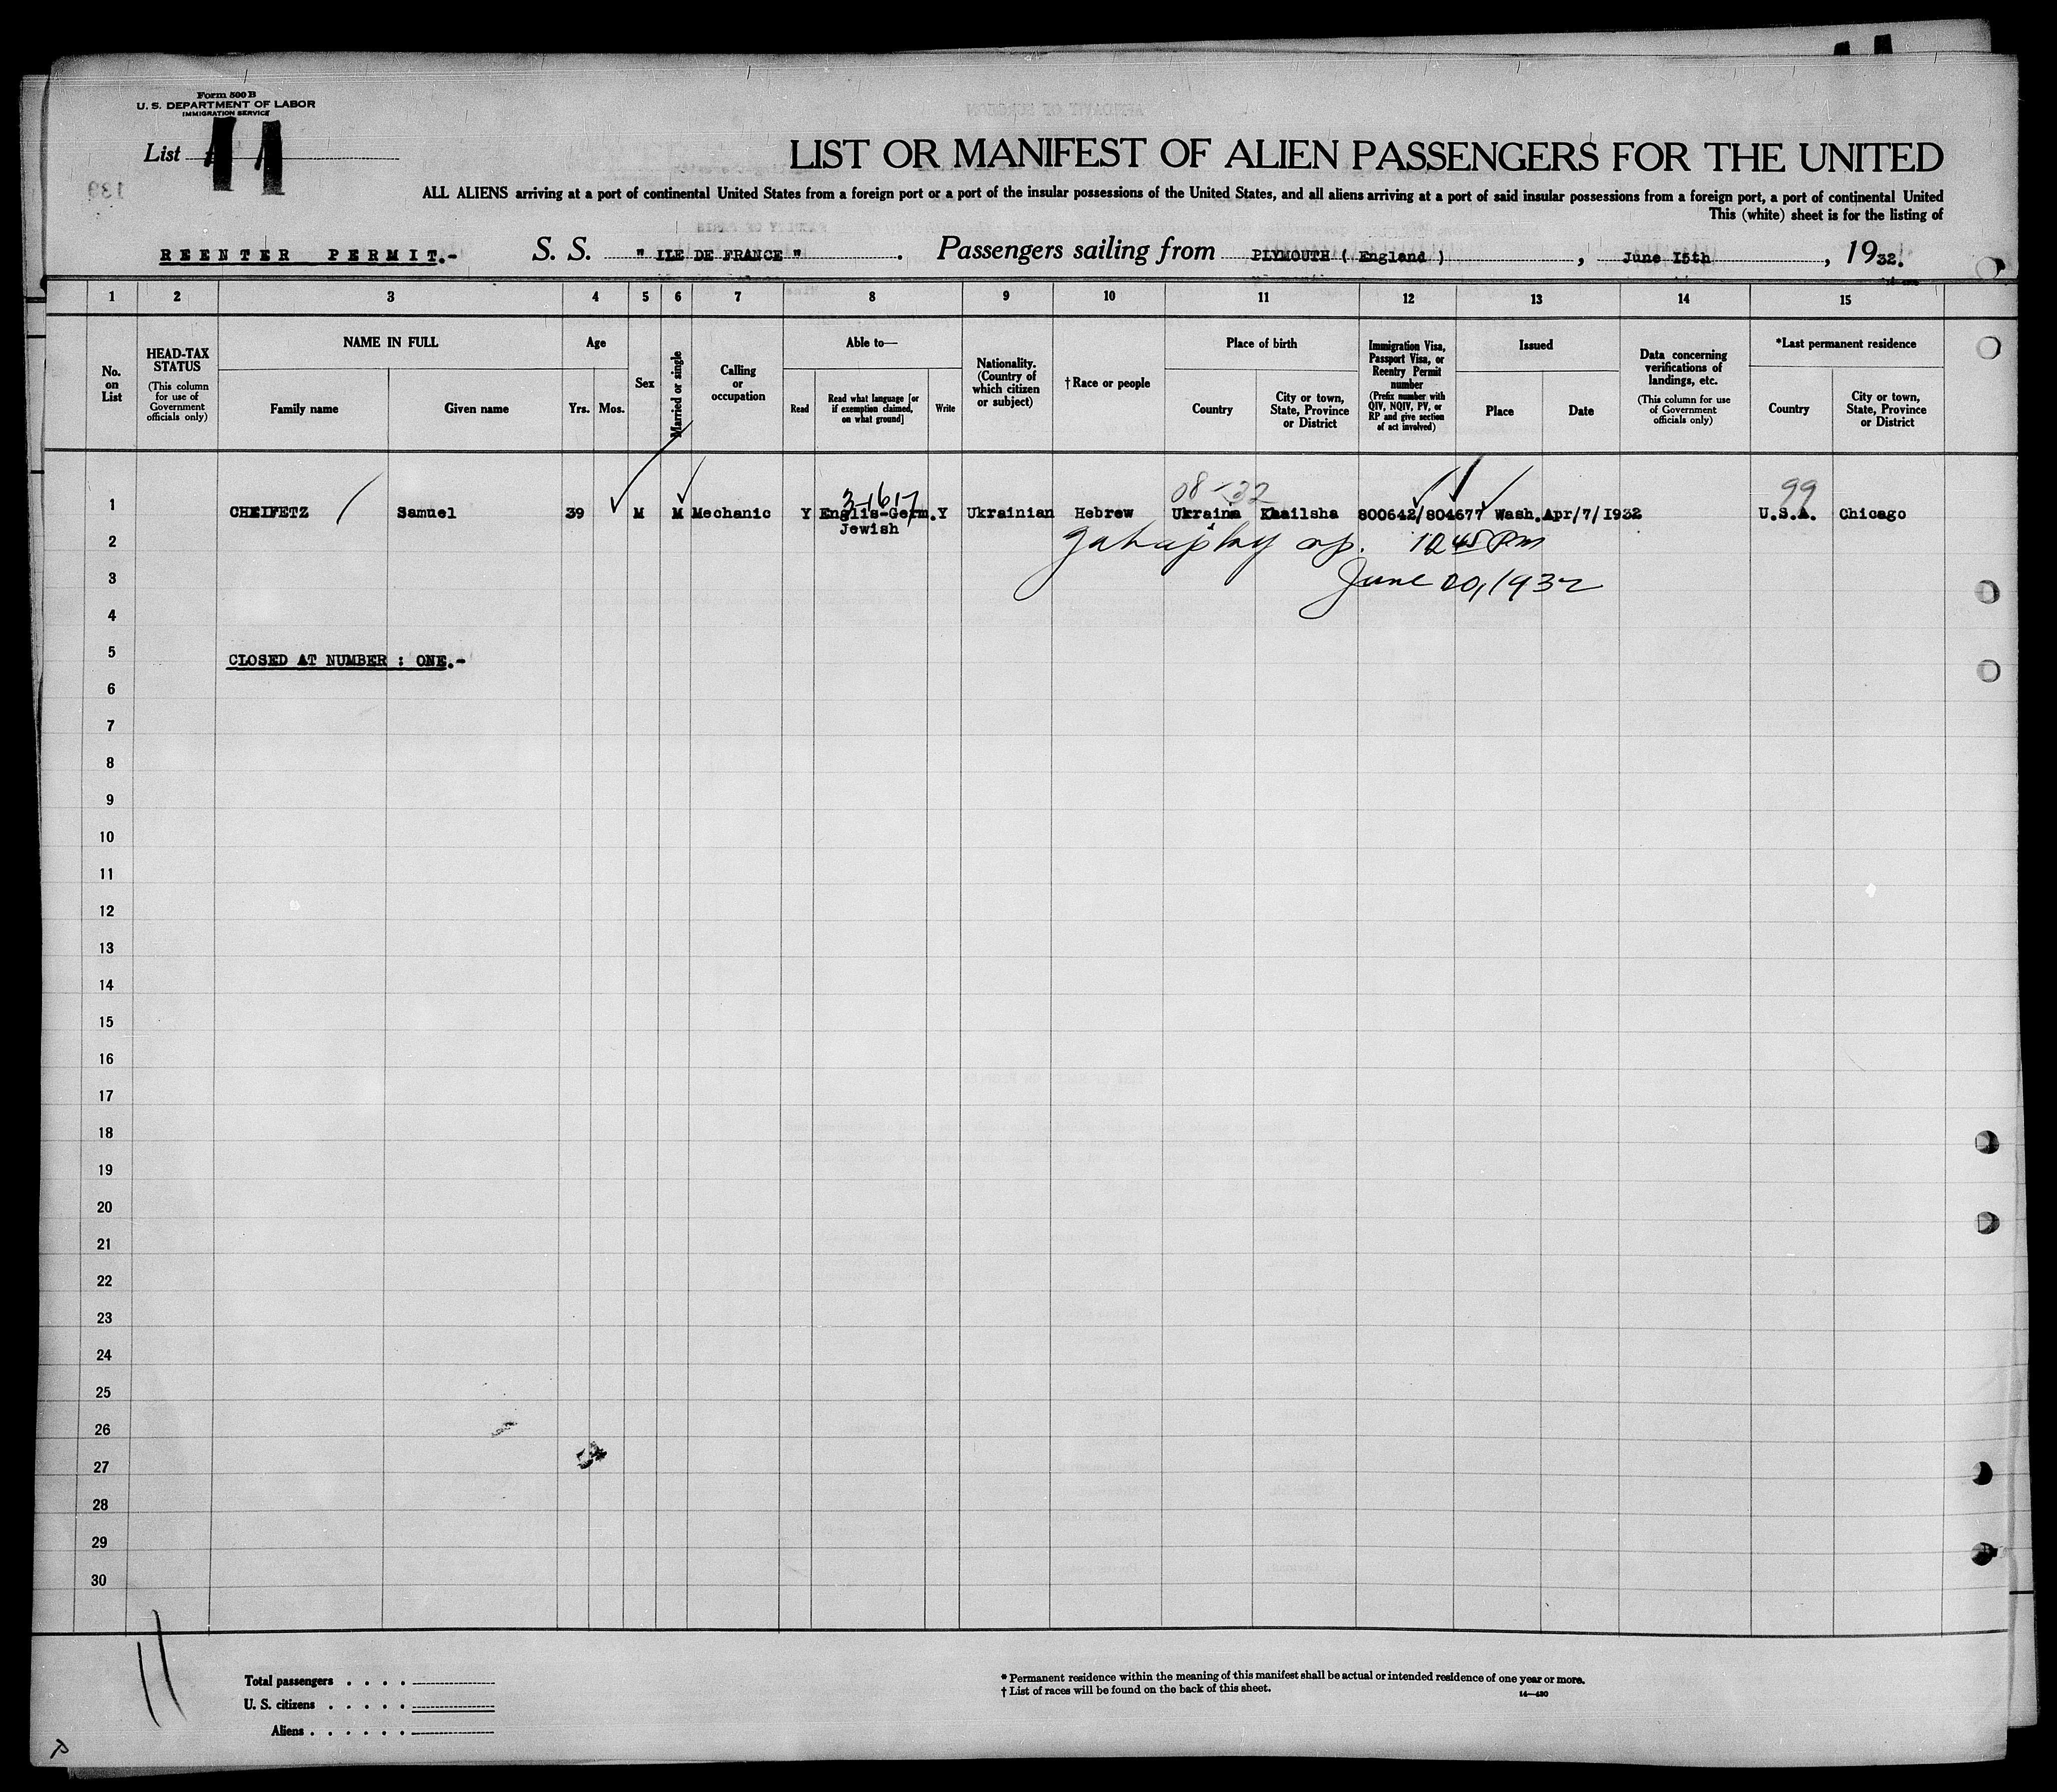 Form 500 B
U. S. DEPARTMENT OF LABOR
IMMIGRATION SERVICE
List 11
LIST OR MANIFEST OF ALIEN PASSENGERS FOR THE UNITED
ALL ALIENS arriving at a port of continental United States from a foreign port or a port of the insular possessions of the United States, and all aliens arriving at a port of said insular possessions from a foreign port, a port of continental United
This (white) sheet is for the listing of
REENTER PERMIT.- S. S. " ILE DE FRANCE " . Passengers sailing from PLYMOUTH ( England ) , June 15th , 1932.
1 2 3 4 5 6 7 8 9 10 11 12 13 14 15
No. on List
HEAD-TAX STATUS
(This column for use of Government officials only)
NAME IN FULL
Family name
Given name
Age
Yrs. Mos.
Sex
Married or single
Calling or occupation
Able to—
Read
Read what language [or if exemption claimed, on what ground]
Write
Nationality. (Country of which citizen or subject)
†Race or people
Place of birth
Country
City or town, State, Province or District
Immigration Visa, Passport Visa, or Reentry Permit number
(Prefix number with QIV, NQIV, PV, or RP and give section of act involved)
Issued
Place
Date
Data concerning verifications of landings, etc.
(This column for use of Government officials only)
*Last permanent residence
Country
City or town, State, Province or District
3-1617
08-32
99
1 CHEIFETZ Samuel 39 M M Mechanic Y Englis-Germ. Y Ukrainian Hebrew Ukraina Khailsha 800642/804677 Wash. Apr/7/1932 U.S.A. Chicago
Jewish
2 12 45 Pm
3 June 20, 1932
4
5 CLOSED AT NUMBER : ONE.-
6
7
8
9
10
11
12
13
14
15
16
17
18
19
20
21
22
23
24
25
26
27
28
29
30
11
Total passengers . . . .
U. S. citizens . . . . .
Aliens . . . . . .
* Permanent residence within the meaning of this manifest shall be actual or intended residence of one year or more.
† List of races will be found on the back of this sheet.
14—430